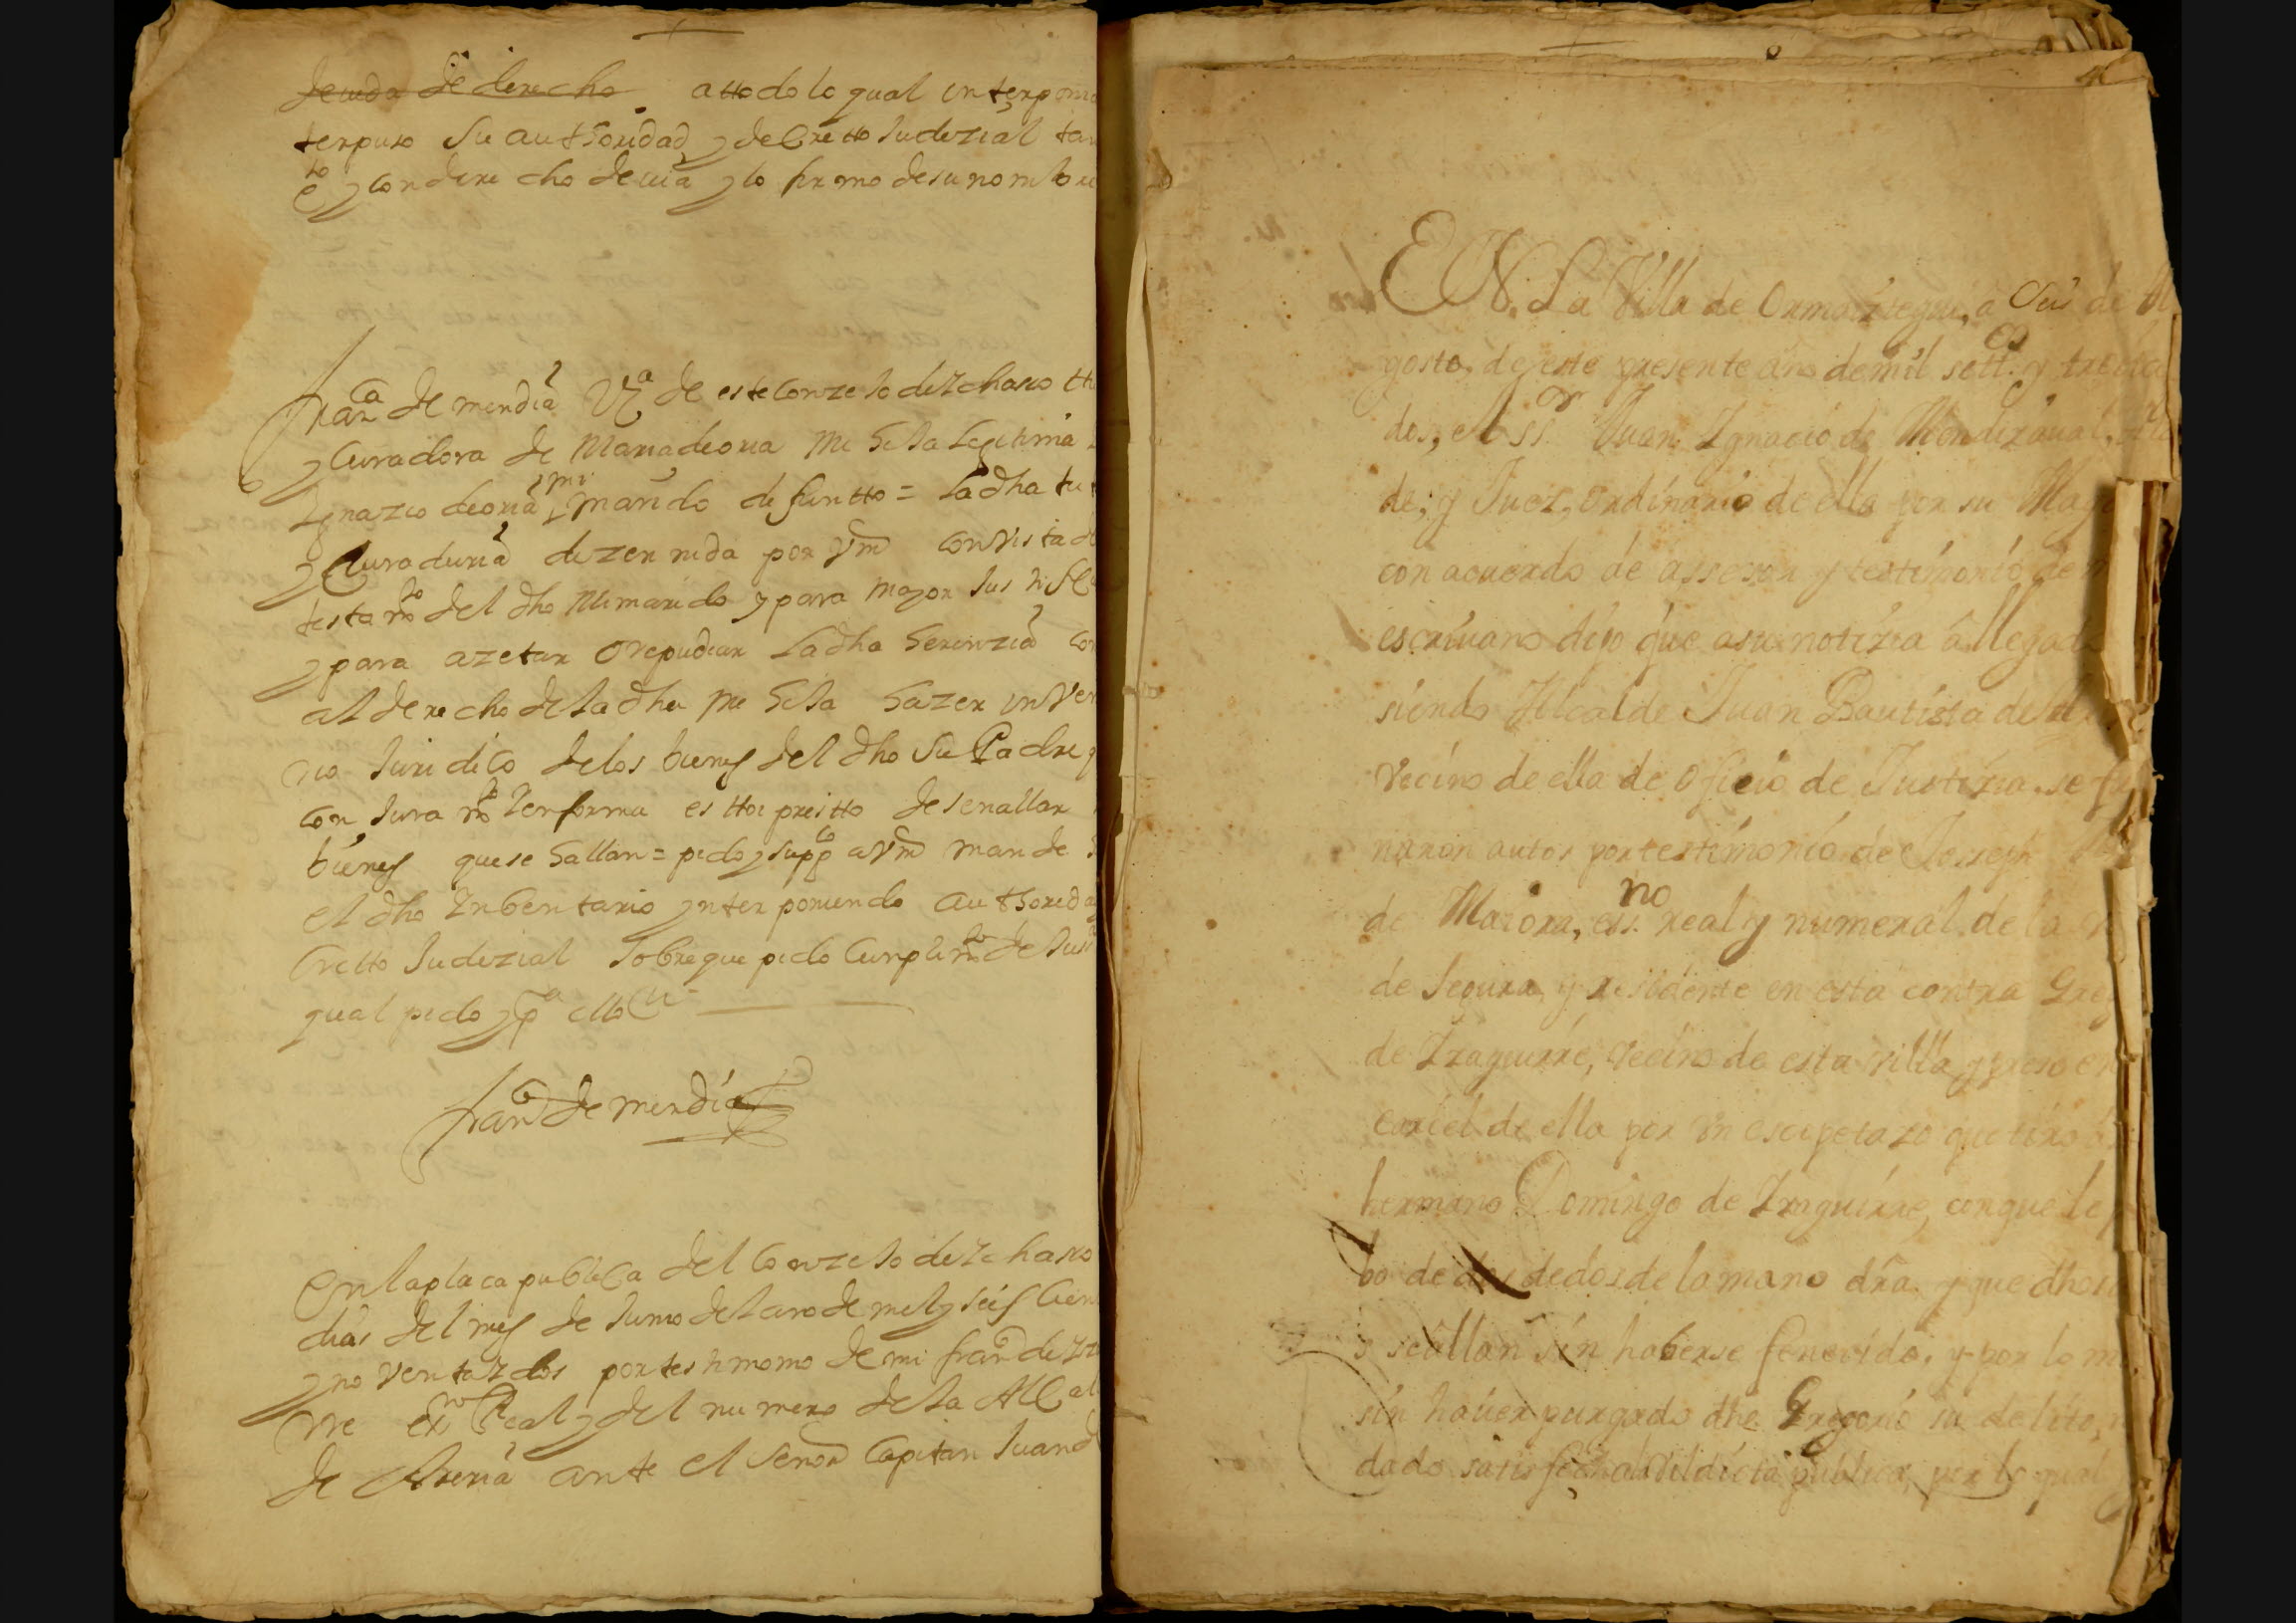 deuda de derecho attodo lo qual interpom
terpuso su authoridad y decretto Judizial tan
to e y con derecho deuia y lo firmo de su nombre
franca de mendia Va de este conzejo de Ichaso
y Curadora de Maria de oria mi hija Legitima
Ignazio de oria mi marido defuntto = La dha tut
y Curaduria dizernida por Vmd con vista de
testamto del dho Mi marido y para mayor Jus
y para azetar o repudiar La dha herenzia con
al derecho de la dha mi hija hazer inven
rio Juridico de los bienes del dho su Padre q
con Juramto en forma esttoi prestto de senallar
bienes que se hallan = pido y suppco a Vmd mande
el dho Inbentario ynterponiendo authorida
Cretto Judizial Sobre que pido Cunplimto de Just
qual pido y pa ello &
franca de mendia
En la placa publica del Conzejo de Ichaso
dias del mes de Junio del ano de mil y seis cien
y noventa y dos por testimonio de mi franco de Yza
rre exno Real y del numero de la Alcal
de Areria ante el senor Capitan Juan d
EN. La Villa de Ormaiztegui, a seis de A
gosto, de este presente año de mil settos y treinta
dos, el ssor Juan Ignacio de Mendizaual, Alc
de, y Juez, ordinario de ella por su Mag
con acuerdo de assesor y testimonio de m
escriuano dijo que asu notizia a llegado
siendo Alcalde Juan Bautista de
vecino de ella de oficio de Justizia, se ful
naron autos por testimonio de Joseph
de Maiora, essno real y numeral de la V
de Segura, y residente en esta contra Greg
de Yraguirre, vecino de esta villa y preso en
carzel de ella por vn escopetazo que tiro a
hermano Domingo de Yraguirre, con que le p
bo de dos dedos de la mano dra, y que dhos
s se allan sin haberse fenecido, y por lo m
sin hauer purgado dho Gregorio su delito,
dado satisfacion a la Vildicta publica, por lo qual